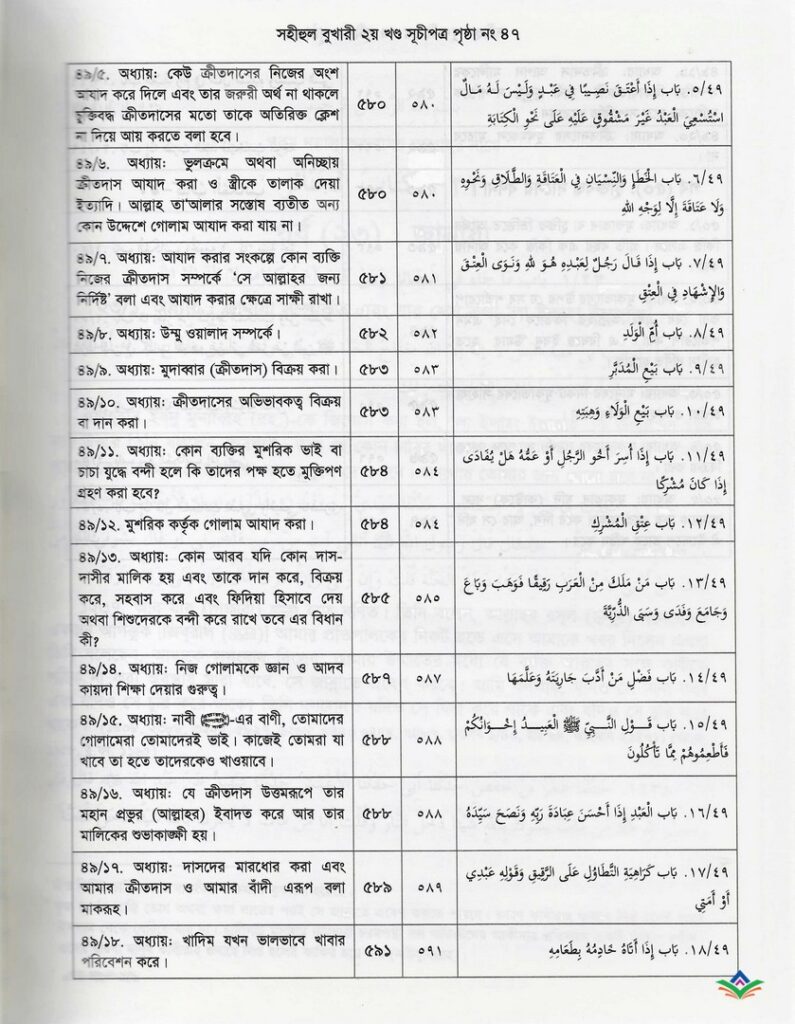 সহীহুল বুখারী ২য় খণ্ড সূচীপত্র পৃষ্ঠা নং ৪৭
৪৯/৫. অধ্যায়: কেউ ক্রীতদাসের নিজের অংশ
আযাদ করে দিলে এবং তার জরুরী অর্থ না থাকলে
চুক্তিবদ্ধ ক্রীতদাসের মতো তাকে অতিরিক্ত ক্লেশ
না দিয়ে আয় করতে বলা হবে।
৫৮০
٥٨٠
٥/٤٩. بَاب إِذَا أَعْتَقَ نَصِيبًا فِي عَبْدٍ وَلَيْسَ لَهُ مَالٌ
اسْتُسْعِيَ الْعَبْدُ غَيْرَ مَشْقُوقٍ عَلَيْهِ عَلَى نَحْوِ الْكِتَابَةِ
৪৯/৬. অধ্যায়: ভুলক্রমে অথবা অনিচ্ছায়
ক্রীতদাস আযাদ করা ও স্ত্রীকে তালাক দেয়া
ইত্যাদি। আল্লাহ তা'আলার সন্তোষ ব্যতীত অন্য
কোন উদ্দেশে গোলাম আযাদ করা যায় না।
৫৮০
٥٨٠
٦/٤٩. بَاب الْخَطَإِ وَالنِّسْيَانِ فِي الْعَتَاقَةِ وَالطَّلَاقِ وَنَحْوِهِ
وَلَا عَتَاقَةَ إِلَّا لِوَجْهِ اللهِ
৪৯/৭. অধ্যায়: আযাদ করার সংকল্পে কোন ব্যক্তি
নিজের ক্রীতদাস সম্পর্কে ‘সে আল্লাহর জন্য
নির্দিষ্ট’ বলা এবং আযাদ করার ক্ষেত্রে সাক্ষী রাখা।
৫৮১
٥٨١
٧/٤٩. بَاب إِذَا قَالَ رَجُلٌ لِعَبْدِهِ هُوَ لِلَّهِ وَنَوَى الْعِتْقَ
وَالْإِشْهَادِ فِي الْعِتْقِ
৪৯/৮. অধ্যায়: উম্মু ওয়ালাদ সম্পর্কে।
৫৮২
٥٨٢
٨/٤٩. بَاب أُمِّ الْوَلَدِ
৪৯/৯. অধ্যায়: মুদাব্বার (ক্রীতদাস) বিক্রয় করা।
৫৮৩
٥٨٣
٩/٤٩. بَاب بَيْعِ الْمُدَبَّرِ
৪৯/১০. অধ্যায়: ক্রীতদাসের অভিভাবকত্ব বিক্রয়
বা দান করা।
৫৮৩
٥٨٣
١٠/٤٩. بَاب بَيْعِ الْوَلَاءِ وَهِبَتِهِ
৪৯/১১. অধ্যায়: কোন ব্যক্তির মুশরিক ভাই বা
চাচা যুদ্ধে বন্দী হলে কি তাদের পক্ষ হতে মুক্তিপণ
গ্রহণ করা হবে?
৫৮৪
٥٨٤
١١/٤٩. بَاب إِذَا أُسِرَ أَخُو الرَّجُلِ أَوْ عَمُّهُ هَلْ يُفَادَى
إِذَا كَانَ مُشْرِكًا
৪৯/১২. মুশরিক কর্তৃক গোলাম আযাদ করা।
৫৮৪
٥٨٤
١٢/٤٩. بَاب عِتْقِ الْمُشْرِكِ
৪৯/১৩. অধ্যায়: কোন আরব যদি কোন দাস-
দাসীর মালিক হয় এবং তাকে দান করে, বিক্রয়
করে, সহবাস করে এবং ফিদিয়া হিসাবে দেয়
অথবা শিশুদেরকে বন্দী করে রাখে তবে এর বিধান
কী?
৫৮৫
٥٨٥
١٣/٤٩. بَاب مَنْ مَلَكَ مِنْ الْعَرَبِ رَقِيقًا فَوَهَبَ وَبَاعَ
وَجَامَعَ وَفَدَى وَسَبَى الذُّرِّيَّةَ
৪৯/১৪. অধ্যায়: নিজ গোলামকে জ্ঞান ও আদব
কায়দা শিক্ষা দেয়ার গুরুত্ব।
৫৮৭
٥٨٧
١٤/٤٩. بَاب فَضْلِ مَنْ أَدَّبَ جَارِيَتَهُ وَعَلَّمَهَا
৪৯/১৫. অধ্যায়: নাবী (ﷺ)-এর বাণী, তোমাদের
গোলামেরা তোমাদেরই ভাই। কাজেই তোমরা যা
খাবে তা হতে তাদেরকেও খাওয়াবে।
৫৮৮
٥٨٨
١٥/٤٩. بَاب قَوْلِ النَّبِيِّ ﷺ الْعَبِيدُ إِخْوَانُكُمْ
فَأَطْعِمُوهُمْ مِمَّا تَأْكُلُونَ
৪৯/১৬. অধ্যায়: যে ক্রীতদাস উত্তমরূপে তার
মহান প্রভুর (আল্লাহর) ইবাদত করে আর তার
মালিকের শুভাকাঙ্ক্ষী হয়।
৫৮৮
٥٨٨
١٦/٤٩. بَاب الْعَبْدِ إِذَا أَحْسَنَ عِبَادَةَ رَبِّهِ وَنَصَحَ سَيِّدَهُ
৪৯/১৭. অধ্যায়: দাসদের মারধোর করা এবং
আমার ক্রীতদাস ও আমার বাঁদী এরূপ বলা
মাকরূহ।
৫৮৯
٥٨٩
١٧/٤٩. بَاب كَرَاهِيَةِ التَّطَاوُلِ عَلَى الرَّقِيقِ وَقَوْلِهِ عَبْدِي
أَوْ أَمَتِي
৪৯/১৮. অধ্যায়: খাদিম যখন ভালভাবে খাবার
পরিবেশন করে।
৫৯১
٥٩١
١٨/٤٩. بَاب إِذَا أَتَاهُ خَادِمُهُ بِطَعَامِهِ